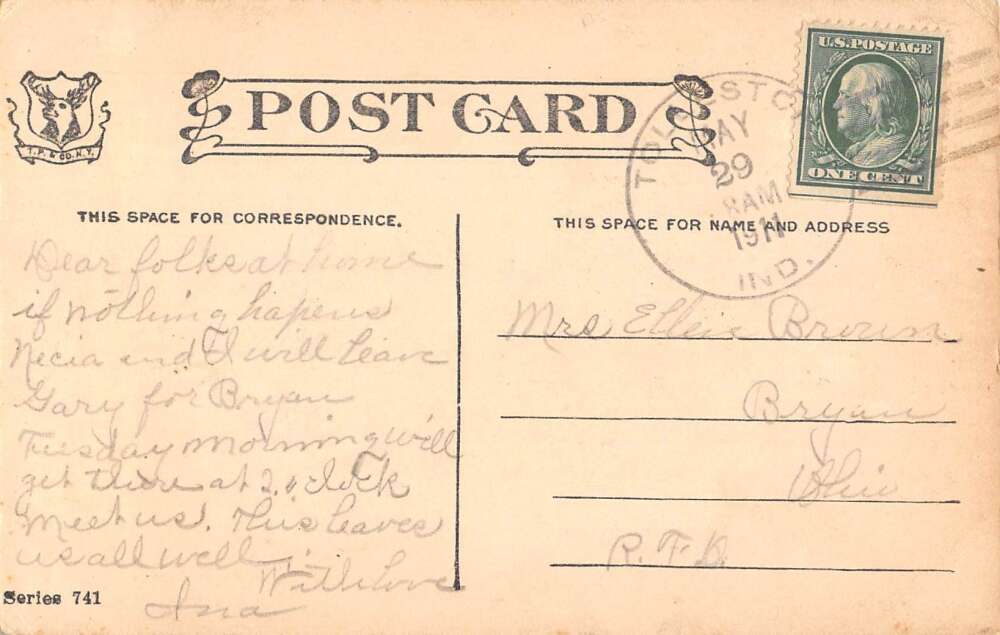 POST CARD
T. P. & CO. N.Y.
U.S. POSTAGE
ONE CENT
TOLLESTON
MAY
29
AM
1911
IND.
THIS SPACE FOR CORRESPONDENCE.
THIS SPACE FOR NAME AND ADDRESS
Dear folks at home
if nothing hapens
Necia and I will leave
Gary for Bryan
Tuesday morning will
get there at 2. o clock
meet us. This leaves
us all well
With love
Ina
Mrs Ellein Brown
Bryan
Ohio
R.F.D.
Series 741